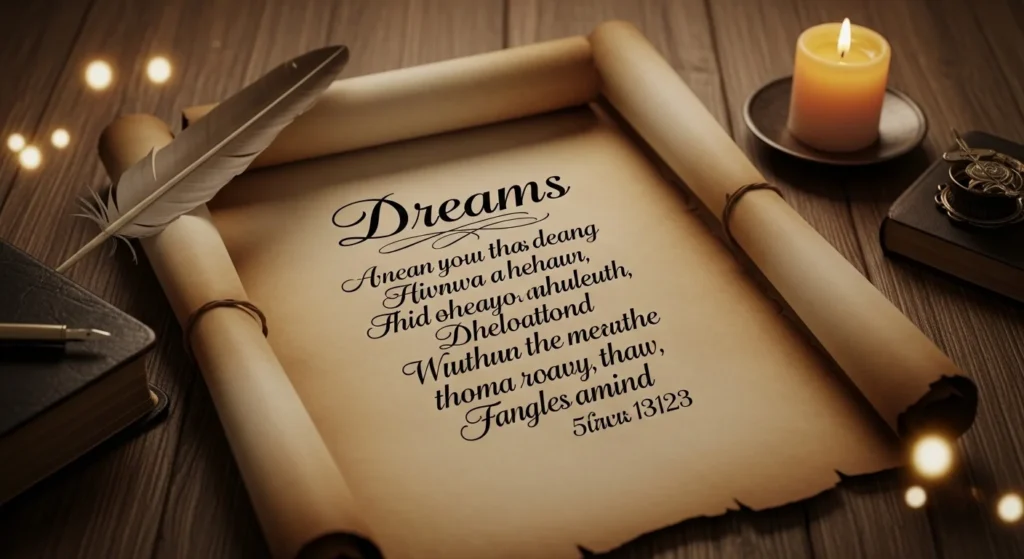 Dreams
Anean you thas deang
Hivnwa a hehawr,
Fhid oheayo, ahuleuth,
Dheloattond
Wuthun the meruthe
thoma roavy, thaw,
Fangles amind
13123